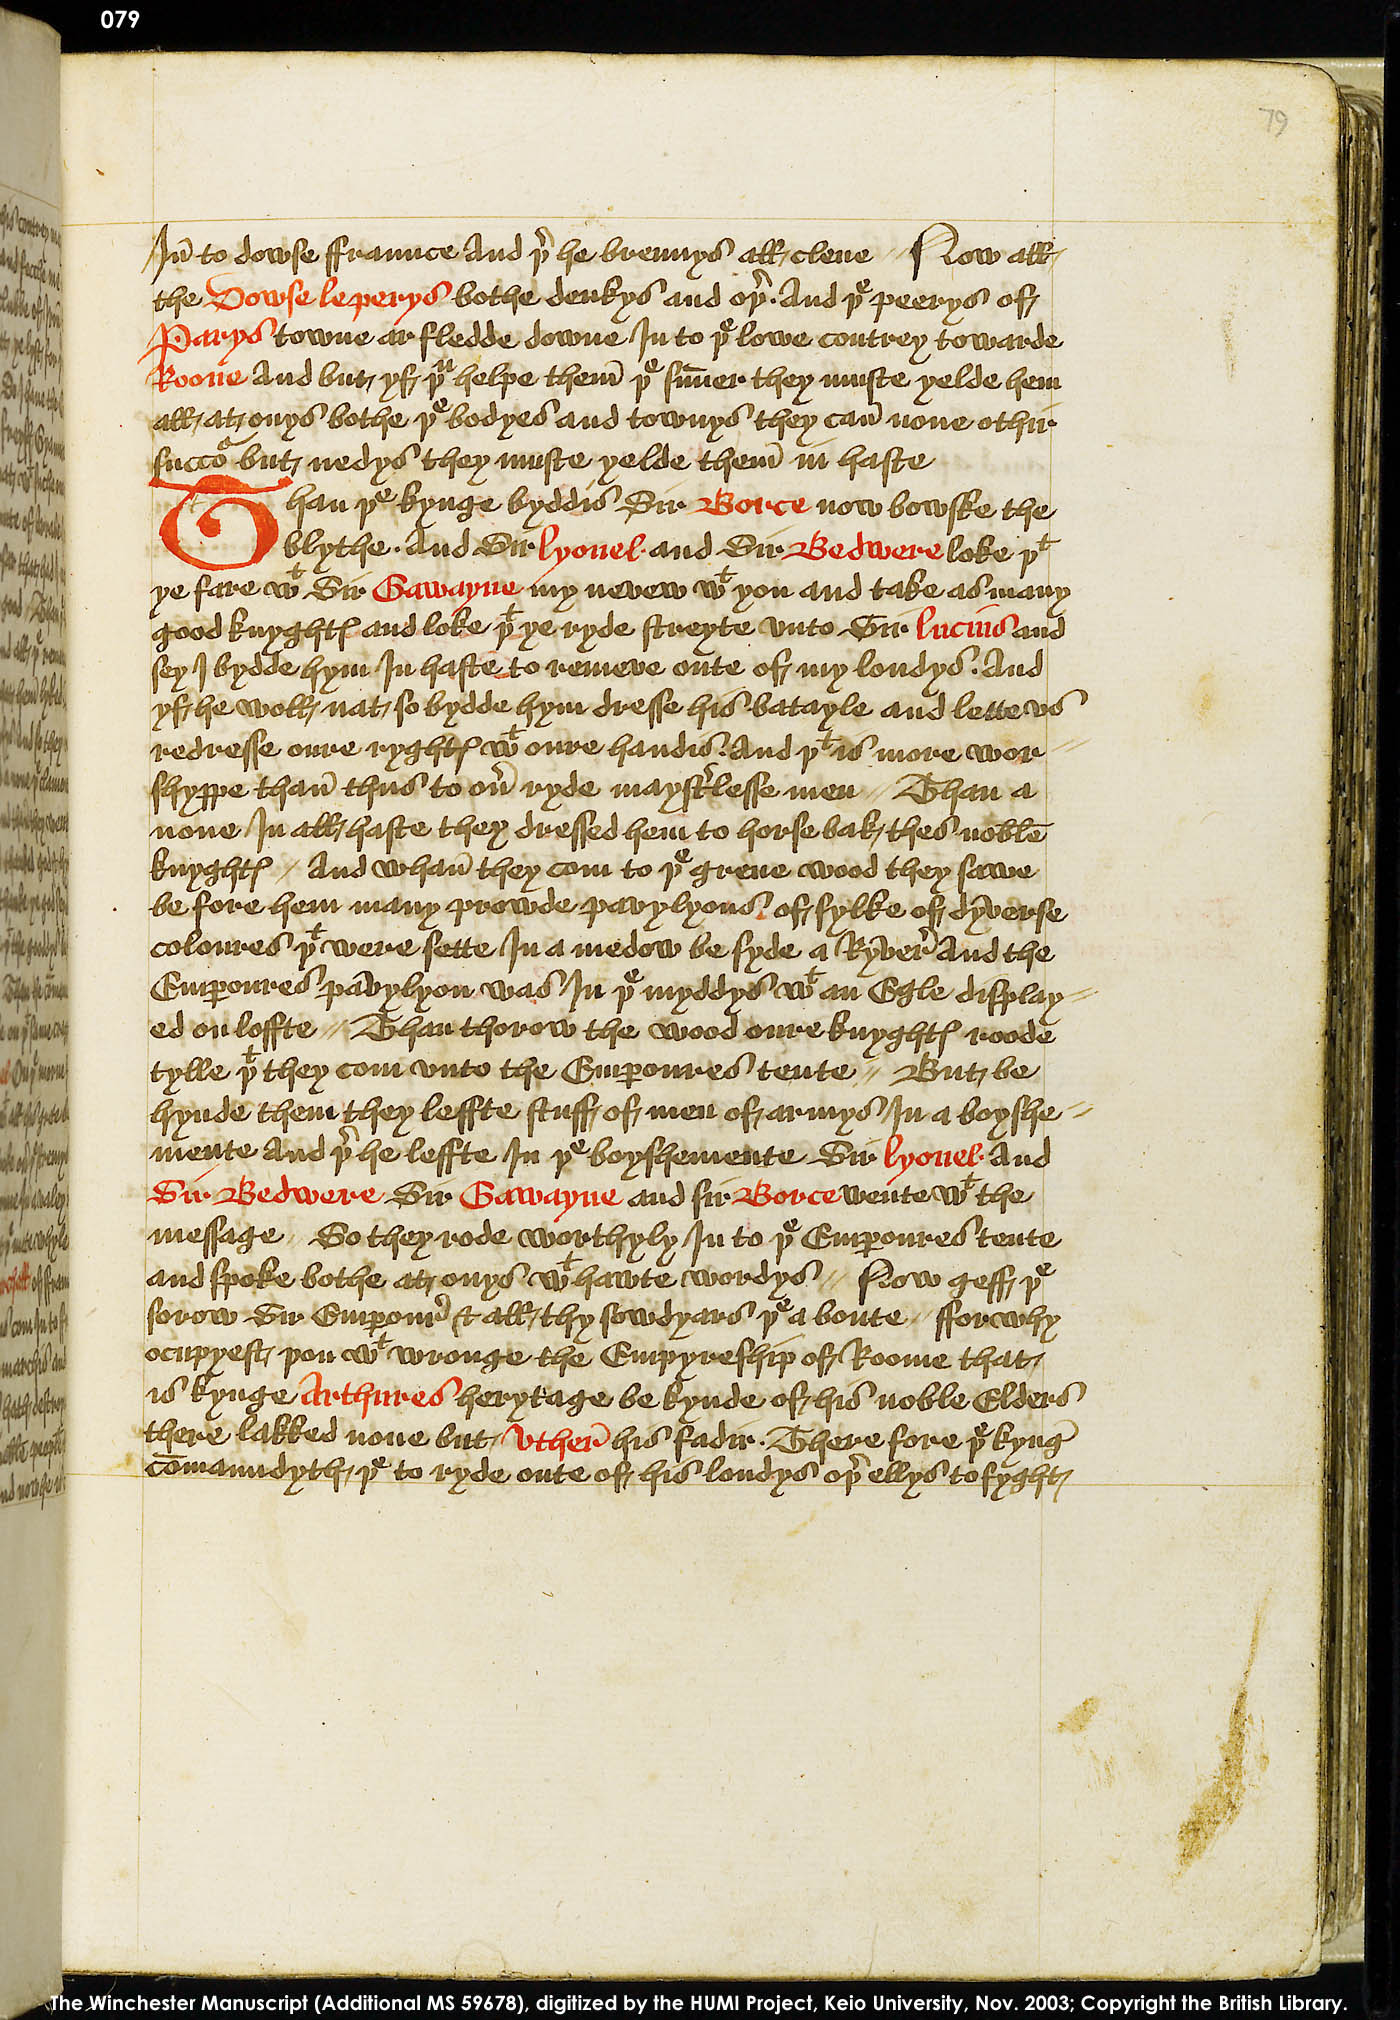 079
79
Jn̄ to dowse ffraunce And þr̄ he brennys all clene // Now all
the Dowseleperys bothe deukys and oþr̄. And þe peerys of
Parys towne ar fledde downe Jn to þe lowe contrey towarde
Roone And but yf þu helpe them̄ þe sun̄er they muste yelde hem
all at onys bothe þe bodyes and townys they can̄ none othir
succor but nedys they muste yelde them̄ in haste
Than þe kynge byddis Sir Borce now bowske the
blythe. And Sir lyonel. and Sir Bedwere loke þt
ye fare wt Sir Gawayne my nevew wt you and take as many
good knyghtꝭ and loke þt ye ryde streyte vnto Sir lucius and
sey J bydde hym Jn haste to remeve oute of my londys. And
yf he woll nat so bydde hym dresse his batayle and lette vs
redresse oure ryghtꝭ wt oure handis. And þt is more wor//
shyppe than̄ thus to oū ryde maystr̄lesse men // Than a
none Jn all haste they dressed hem to horse bak thes noble
knyghtꝭ // And whan̄ they com to þe grene wood they sawe
be fore hem many prowde pavylyons of sylke of dyverse
coloures þt were sette Jn a medow be syde a Ryver̄ And the
Emꝑoures pavylyon was Jn þe myddys wt an Egle display//
ed on loffte // Than thorow the wood oure knyghtꝭ roode
tylle þt they com vnto the Emꝑoures tente // But be
hynde them they leffte stuff of men of armys Jn a boyshe//
mente And þr̄ he leffte Jn þe boyshemente Sir lyonel. And
Sir Bedwere Sir Gawayne and sir Borce wente wt the
message // So they rode worthyly Jn to þe Emꝑoures tente
and spoke bothe at onys wt hawte wordys // Now geff þe
sorow Sir Emꝑour̄ & all thy sowdyars þe a boute // fforwhy
ocupyest þou wt wronge the Empyreship of Roome that
is kynge Arthures herytage be kynde of his noble Elders
there lakked none but Vther̄ his fadir. There fore þe kynḡ
com̄aundyth þe to ryde oute of his londys oþr̄ ellys to fyght
The Winchester Manuscript (Additional MS 59678), digitized by the HUMI Project, Keio University, Nov. 2003; Copyright the British Library.